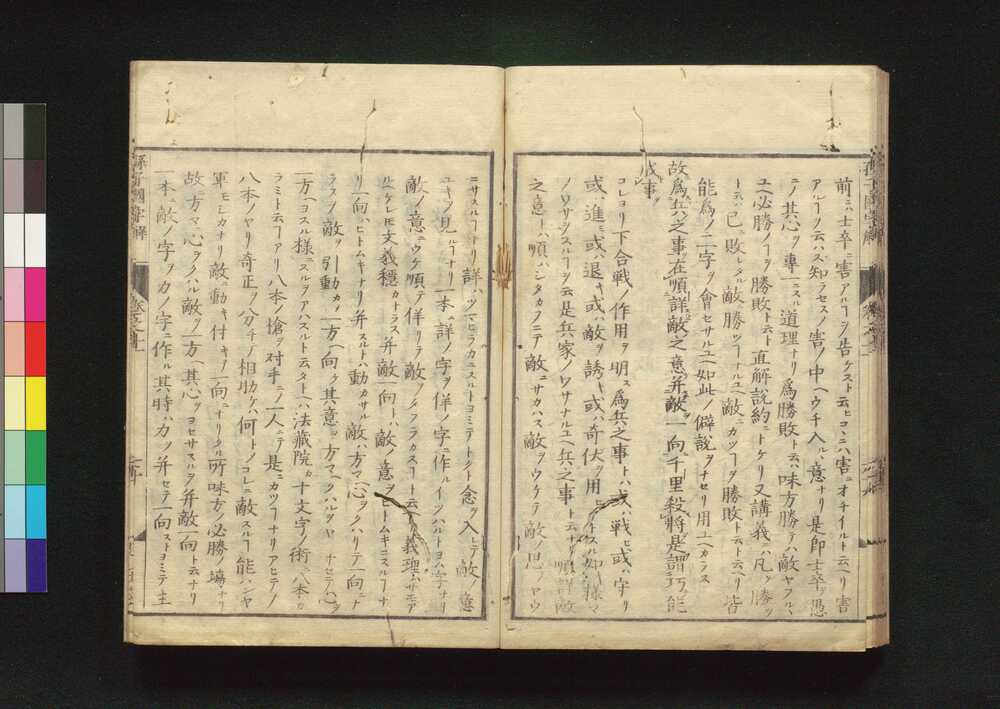 前ニハ士卒ニ害アルコヲ告ケスト云ヒコヽニハ害ニオチイルト云ヘリ害
アルコノ云ハス知ラセスノ害ノ中ヘウチ入ルヽ意ナリ是即士卒ヲ愚
ニノ其心ヲ専ニスル道理ナリ爲勝敗ト云ハ味方勝テハ敵ヤフルヽ
ユヘ必勝ノコヲ勝敗ト云ト直解説約ニトケリ又講義ニハ凡ソ勝ツ
トスハ已敗レタル敵勝ツコナルユヘ敵ニカツコヲ勝敗ト云ト云ヘリ皆
能爲ノ二字ヲ會セサルユヘ如此ノ僻説ヲナセリ用ユヘカラス
故爲兵之事在順詳敵之意并敵一向千里殺將是謂巧能
成事
コレヨリ下合戰ノ作用ヲ明ス爲兵之事トハ或ハ戰ヒ或ハ守リ
或ハ進ミ或ハ退キ或ハ敵ヲ誘キ或ハ奇伏ヲ用
ノワサヲスルコヲ云是兵家ノワサナルユヘ兵之事ト云ナリ順詳敵
之意トハ順ハシタカフニテ敵ニサカハス敵ヲウケテ敵ノ思フヤウ
ニサスルコナリ詳ハツマヒラカニスルトヨミテトクト念ヲ入レテ敵ノ意
ユキヲ見ルコナリ一本ニ詳ノ字ヲ佯ノ字ニ作ルイツハルトヨム字ナリ
敵ノ意ヲウケ順テ佯リテ敵ヲタフラカスコト云ナリ義理ハサモア
ルヘケレモ文義穩カナラス并敵一向トハ敵ノ意ヲヒトムキニスルコナ
リ一向ハヒトムキナリ并スルトハ動カサル敵ハ方々ニ心ヲクハリテ一向ニナ
ラスソノ敵ヲ引動カソ一方ヘ向ケ其意ヲ方々ヘクハルヲヤメナセテ心ヲ
一方ヘヨスル様ニスルヲアハスルト云タトヘハ法藏院カ十文字ノ術ニ八本カ
ラミト云コアリ八本ノ槍ヲ対手ニノ一人ニテ是ニカツコナリアヒテノ
八本ノヤリ奇正ヲ分チテ相助ケハ何トノコレニ敵スルコ能ハンヤ
軍モシカナリ敵ノ動キ付キノ一向ニナリタル所味方ノ必勝ノ場ナリ
故ニ方々ヘ心ヲクハル敵ヲ一方ヘ其心ヲヨセサスルヲ并敵一向ト云ナリ
一本ニ敵ノ字ヲ力ノ字ニ作ル其時ハ力ヲ并セテ一向ニストヨミテ主
孫子國字解